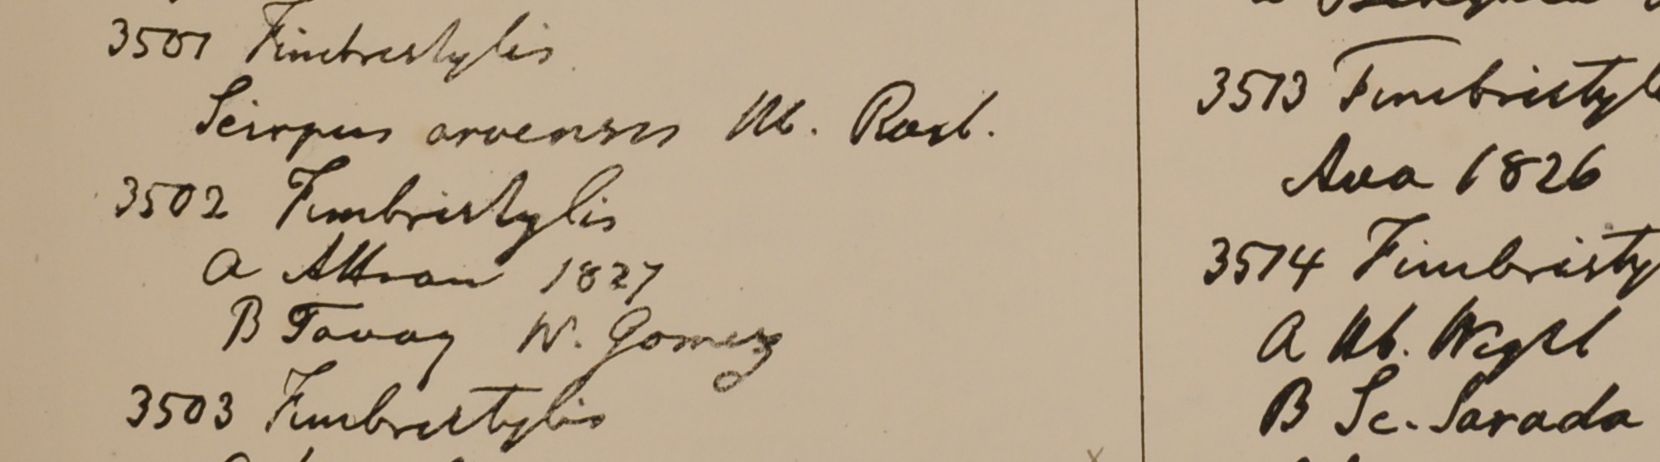 3501 Fimbristylis
Scirpus arvensis Hb. Roxb.
3502 Fimbristylis
a Attran 1827
B Tavoy W. Gomez
3503 Fimbristylis
3513 Fimbristyl
Ava 1826
3514 Fimbristy
a Hb. Wight
B Sc. Sarada